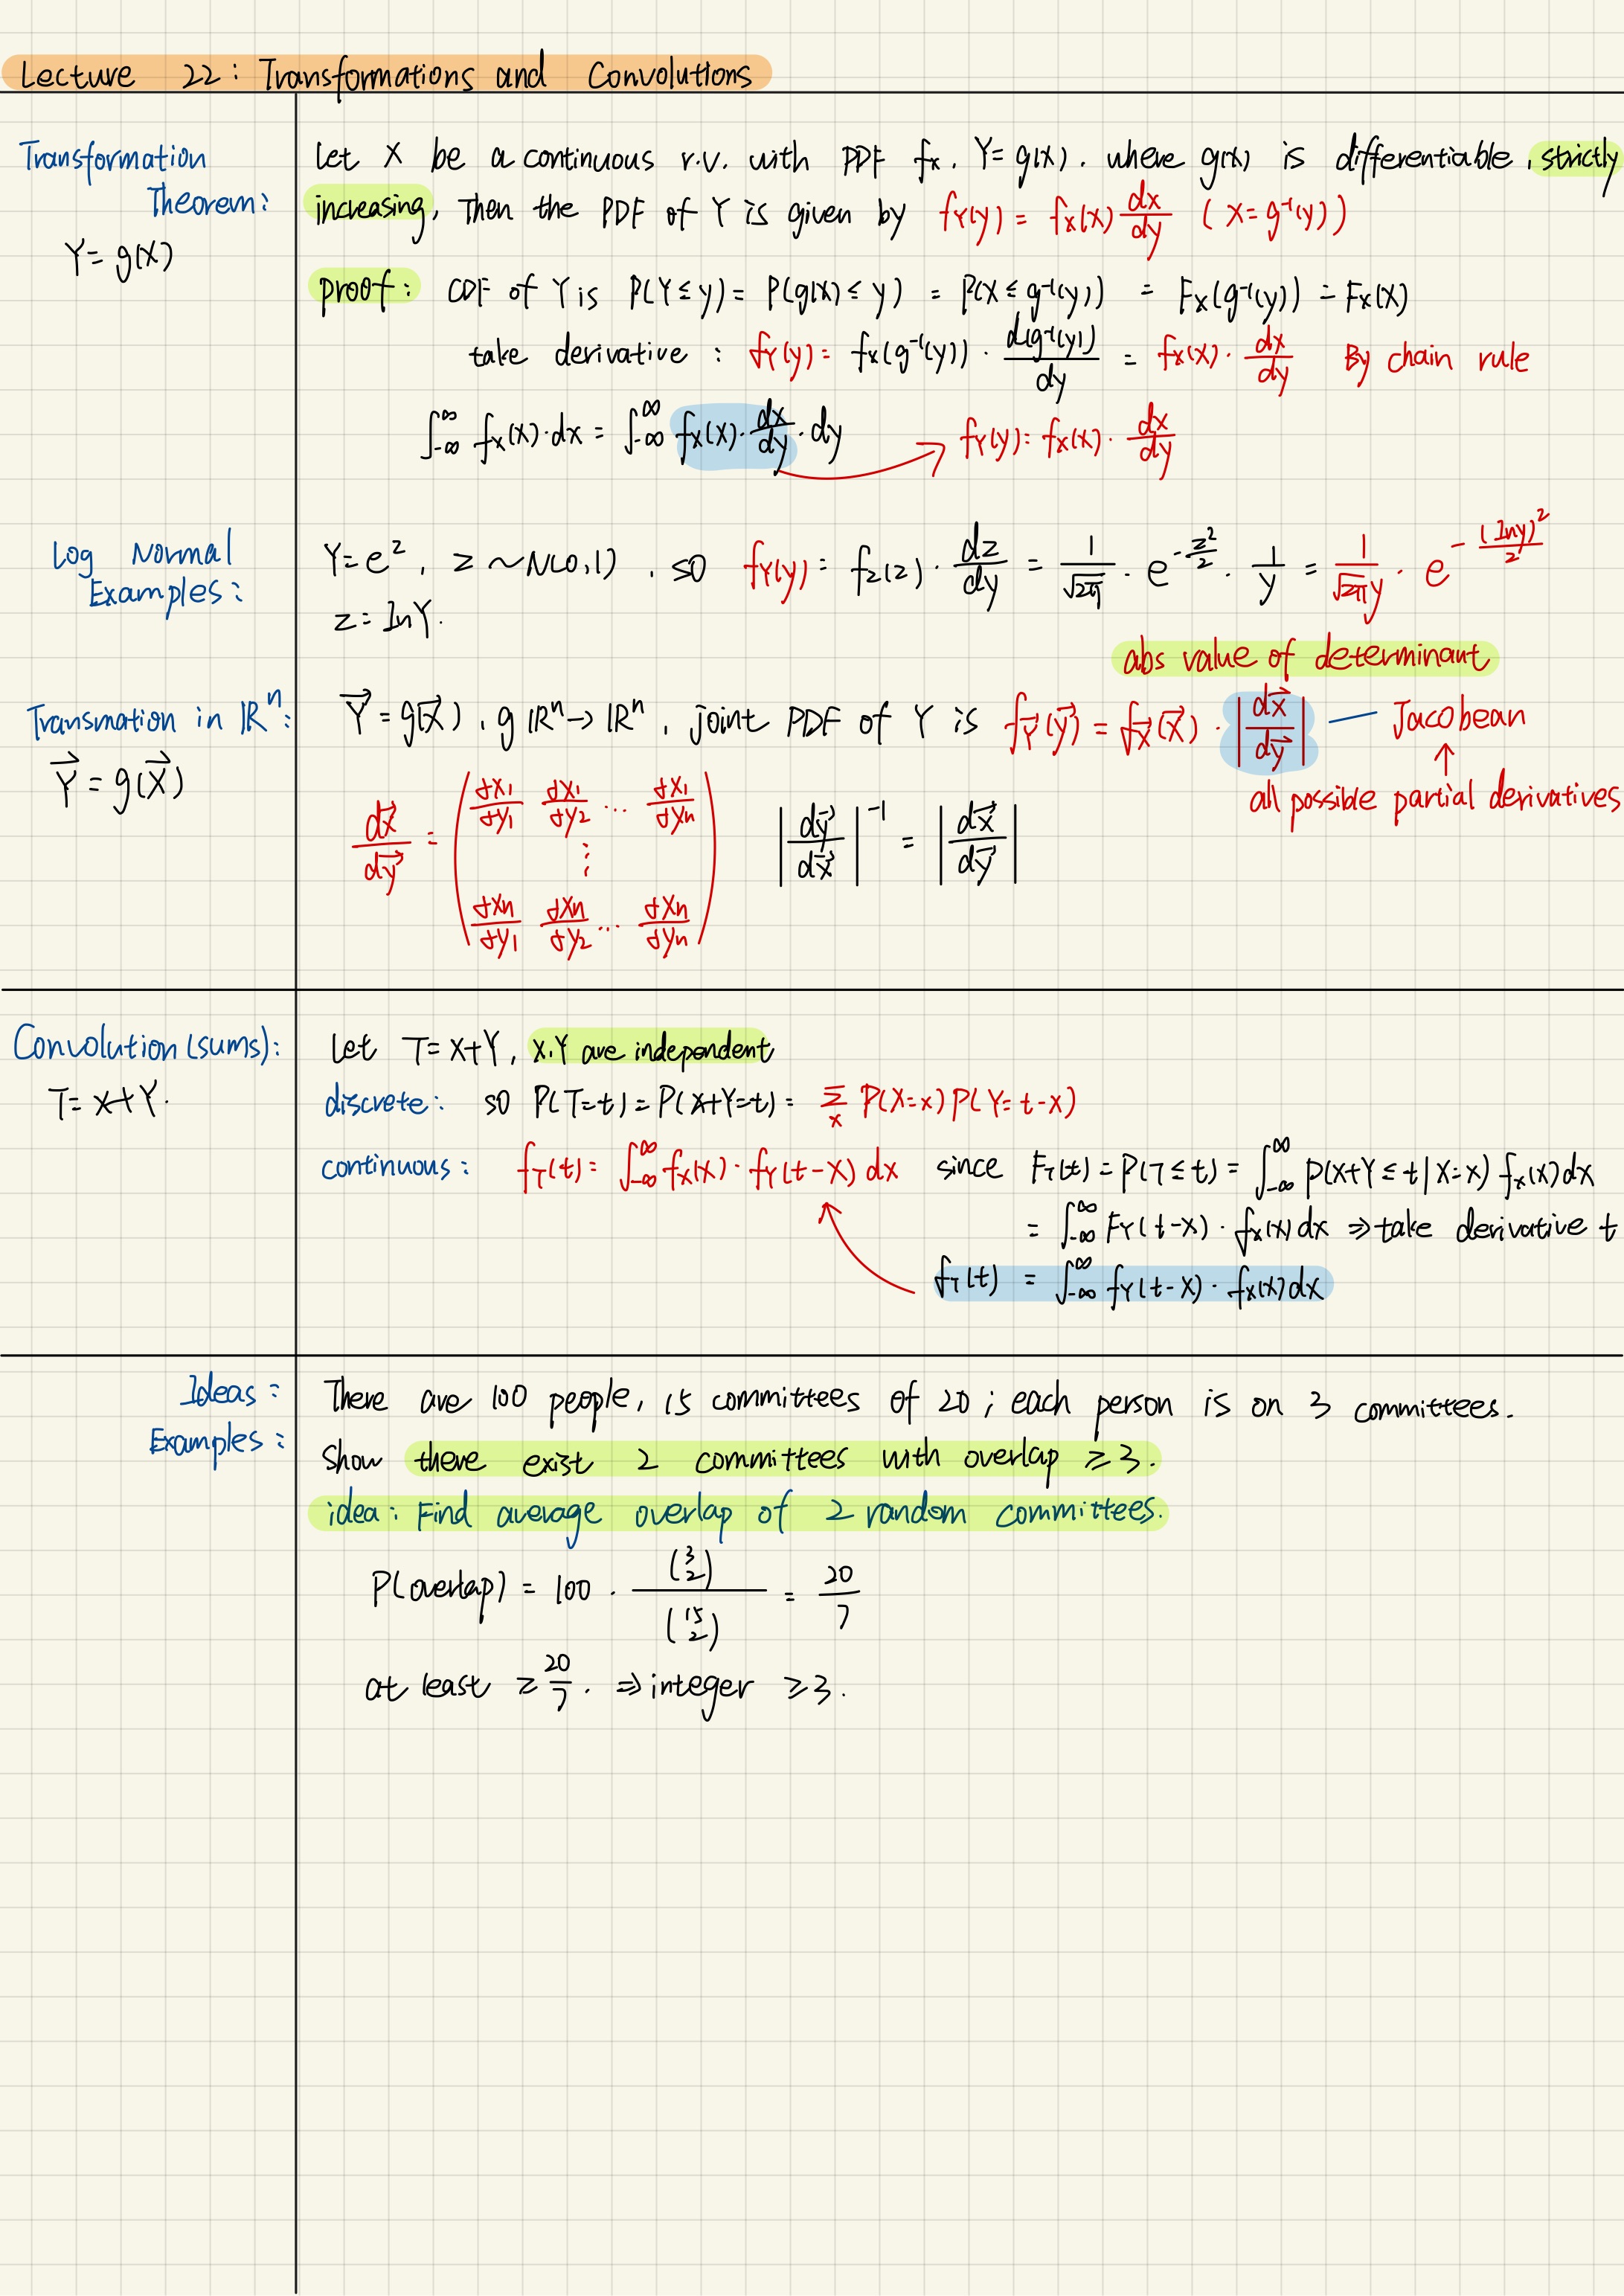 Lecture 22: Transformations and Convolutions
Transformation
Theorem:
Y = g(X)
Let X be a continuous r.v. with PDF fx. Y=g(x). where g(x) is differentiable, strictly
increasing, Then the PDF of Y is given by fY(y) = fx(x) dx/dy (X=g⁻¹(y))
proof: CDF of Y is P(Y≤y) = P(g(x)≤y) = P(X≤g⁻¹(y)) = Fx(g⁻¹(y)) = Fx(X)
take derivative: fY(y) = fx(g⁻¹(y)) · d(g⁻¹(y))/dy = fx(x) · dx/dy By chain rule
∫_{-∞}^{∞} fx(x)·dx = ∫_{-∞}^{∞} fx(x)·dx/dy·dy → fY(y) = fx(x)·dx/dy
Log Normal
Examples:
Y = e^z, z ~ N(0,1). so fY(y) = fz(z) · dz/dy = 1/√2π · e^{-z²/2} · 1/y = 1/(√2π y) · e^{-(lny)²/2}
z = lnY.
abs value of determinant
Transmation in ℝⁿ:
Y⃗ = g(X⃗)
Y⃗ = g(X⃗), g ℝⁿ→ℝⁿ, joint PDF of Y is fY⃗(y⃗) = fX⃗(x⃗) · |dx⃗/dy⃗| — Jacobean
↑
all possible partial derivatives
dx⃗/dy⃗ = ( ∂x1/∂y1 ∂x1/∂y2 ... ∂x1/∂yn
⋮
∂xn/∂y1 ∂xn/∂y2 ... ∂xn/∂yn )
|dy⃗/dx⃗|⁻¹ = |dx⃗/dy⃗|
Convolution (sums):
T = X+Y.
Let T=X+Y, X.Y are independent
discrete: so P(T=t) = P(X+Y=t) = Σ_x P(X=x) P(Y=t-x)
continuous: fT(t) = ∫_{-∞}^{∞} fx(x)·fY(t-x) dx since FT(t) = P(T≤t) = ∫_{-∞}^{∞} P(X+Y≤t|X=x) fx(x)dx
= ∫_{-∞}^{∞} FY(t-x) · fx(x) dx ⇒ take derivative t
fT(t) = ∫_{-∞}^{∞} fY(t-x) · fx(x)dx
Ideas:
Examples:
There are 100 people, 15 committees of 20; each person is on 3 committees.
Show there exist 2 committees with overlap ≥3.
idea: Find average overlap of 2 random committees.
P(overlap) = 100 · (3 2)/(15 2) = 20/7
at least ≥ 20/7. ⇒ integer ≥3.